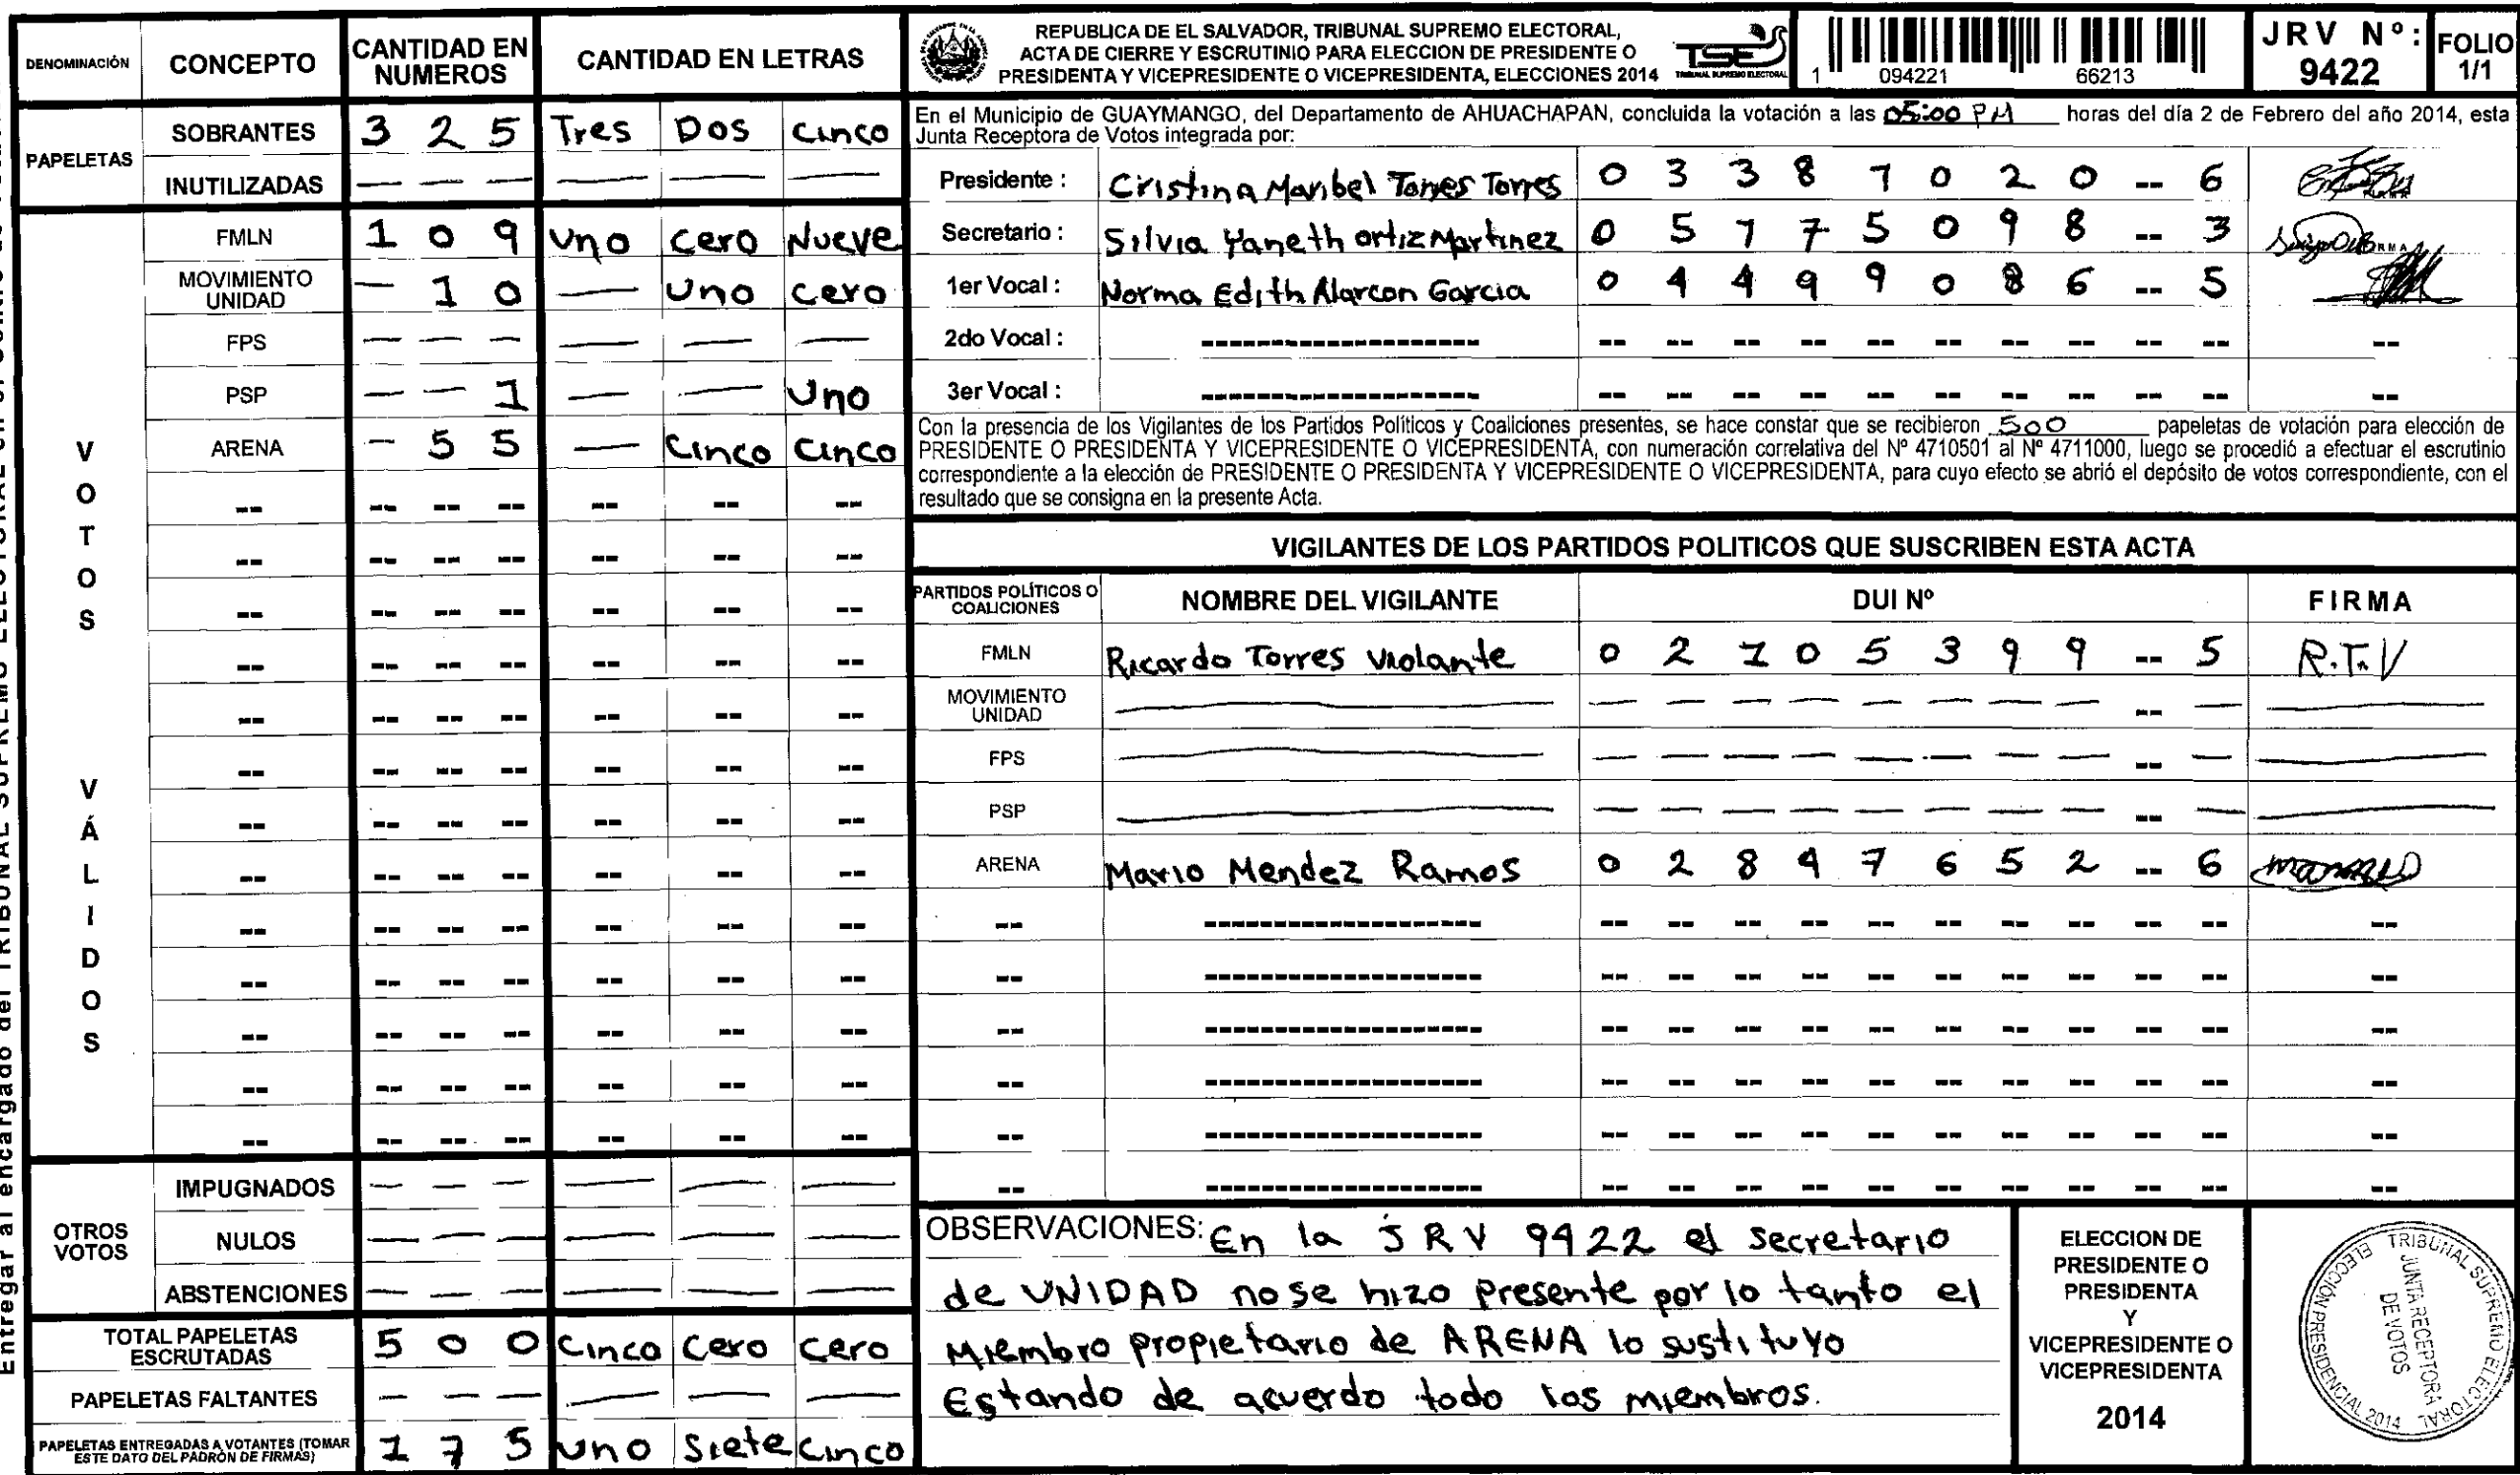 DENOMINACIÓN CONCEPTO CANTIDAD EN NUMEROS CANTIDAD EN LETRAS
PAPELETAS
SOBRANTES 3 2 5 Tres Dos cinco
INUTILIZADAS — — — — — —
VOTOS VÁLIDOS
FMLN 1 0 9 Uno cero Nueve
MOVIMIENTO UNIDAD — 1 0 — Uno cero
FPS — — — — — —
PSP — — 1 — — Uno
ARENA — 5 5 — Cinco Cinco
-- -- -- -- -- -- --
-- -- -- -- -- -- --
-- -- -- -- -- -- --
-- -- -- -- -- -- --
-- -- -- -- -- -- --
-- -- -- -- -- -- --
-- -- -- -- -- -- --
-- -- -- -- -- -- --
-- -- -- -- -- -- --
-- -- -- -- -- -- --
-- -- -- -- -- -- --
-- -- -- -- -- -- --
-- -- -- -- -- -- --
OTROS VOTOS
IMPUGNADOS — — — — — —
NULOS — — — — — —
ABSTENCIONES — — — — — —
TOTAL PAPELETAS ESCRUTADAS 5 0 0 Cinco cero cero
PAPELETAS FALTANTES — — — — — —
PAPELETAS ENTREGADAS A VOTANTES (TOMAR ESTE DATO DEL PADRÓN DE FIRMAS) 1 7 5 uno Siete cinco
REPUBLICA DE EL SALVADOR, TRIBUNAL SUPREMO ELECTORAL,
ACTA DE CIERRE Y ESCRUTINIO PARA ELECCION DE PRESIDENTE O
PRESIDENTA Y VICEPRESIDENTE O VICEPRESIDENTA, ELECCIONES 2014
TSE
TRIBUNAL SUPREMO ELECTORAL
1 094221 66213
JRV Nº: 9422
FOLIO 1/1
En el Municipio de GUAYMANGO, del Departamento de AHUACHAPAN, concluida la votación a las 05:00 PM horas del día 2 de Febrero del año 2014, esta
Junta Receptora de Votos integrada por:
Presidente : Cristina Maribel Torres Torres 0 3 3 8 7 0 2 0 -- 6
Secretario : Silvia Yaneth ortiz Martinez 0 5 7 7 5 0 9 8 -- 3
1er Vocal : Norma Edith Alarcon Garcia 0 4 4 9 9 0 8 6 -- 5
2do Vocal : -------------------- -- -- -- -- -- -- -- -- -- -- --
3er Vocal : -------------------- -- -- -- -- -- -- -- -- -- -- --
Con la presencia de los Vigilantes de los Partidos Políticos y Coaliciones presentes, se hace constar que se recibieron 500 papeletas de votación para elección de
PRESIDENTE O PRESIDENTA Y VICEPRESIDENTE O VICEPRESIDENTA, con numeración correlativa del Nº 4710501 al Nº 4711000, luego se procedió a efectuar el escrutinio
correspondiente a la elección de PRESIDENTE O PRESIDENTA Y VICEPRESIDENTE O VICEPRESIDENTA, para cuyo efecto se abrió el depósito de votos correspondiente, con el
resultado que se consigna en la presente Acta.
VIGILANTES DE LOS PARTIDOS POLITICOS QUE SUSCRIBEN ESTA ACTA
PARTIDOS POLÍTICOS O COALICIONES NOMBRE DEL VIGILANTE DUI Nº FIRMA
FMLN Ricardo Torres Violante 0 2 1 0 5 3 9 9 -- 5 R.T.V
MOVIMIENTO UNIDAD — — — — — — — — — -- — —
FPS — — — — — — — — — -- — —
PSP — — — — — — — — — -- — —
ARENA Mario Mendez Ramos 0 2 8 4 7 6 5 2 -- 6
-- -------------------- -- -- -- -- -- -- -- -- -- -- --
-- -------------------- -- -- -- -- -- -- -- -- -- -- --
-- -------------------- -- -- -- -- -- -- -- -- -- -- --
-- -------------------- -- -- -- -- -- -- -- -- -- -- --
-- -------------------- -- -- -- -- -- -- -- -- -- -- --
-- -------------------- -- -- -- -- -- -- -- -- -- -- --
OBSERVACIONES: En la JRV 9422 el secretario
de UNIDAD no se hizo presente por lo tanto el
Miembro propietario de ARENA lo sustituyo
Estando de acuerdo todo los miembros.
ELECCION DE
PRESIDENTE O
PRESIDENTA
Y
VICEPRESIDENTE O
VICEPRESIDENTA
2014
TRIBUNAL SUPREMO ELECTORAL
JUNTA RECEPTORA
DE VOTOS
ELECCIÓN PRESIDENCIAL 2014